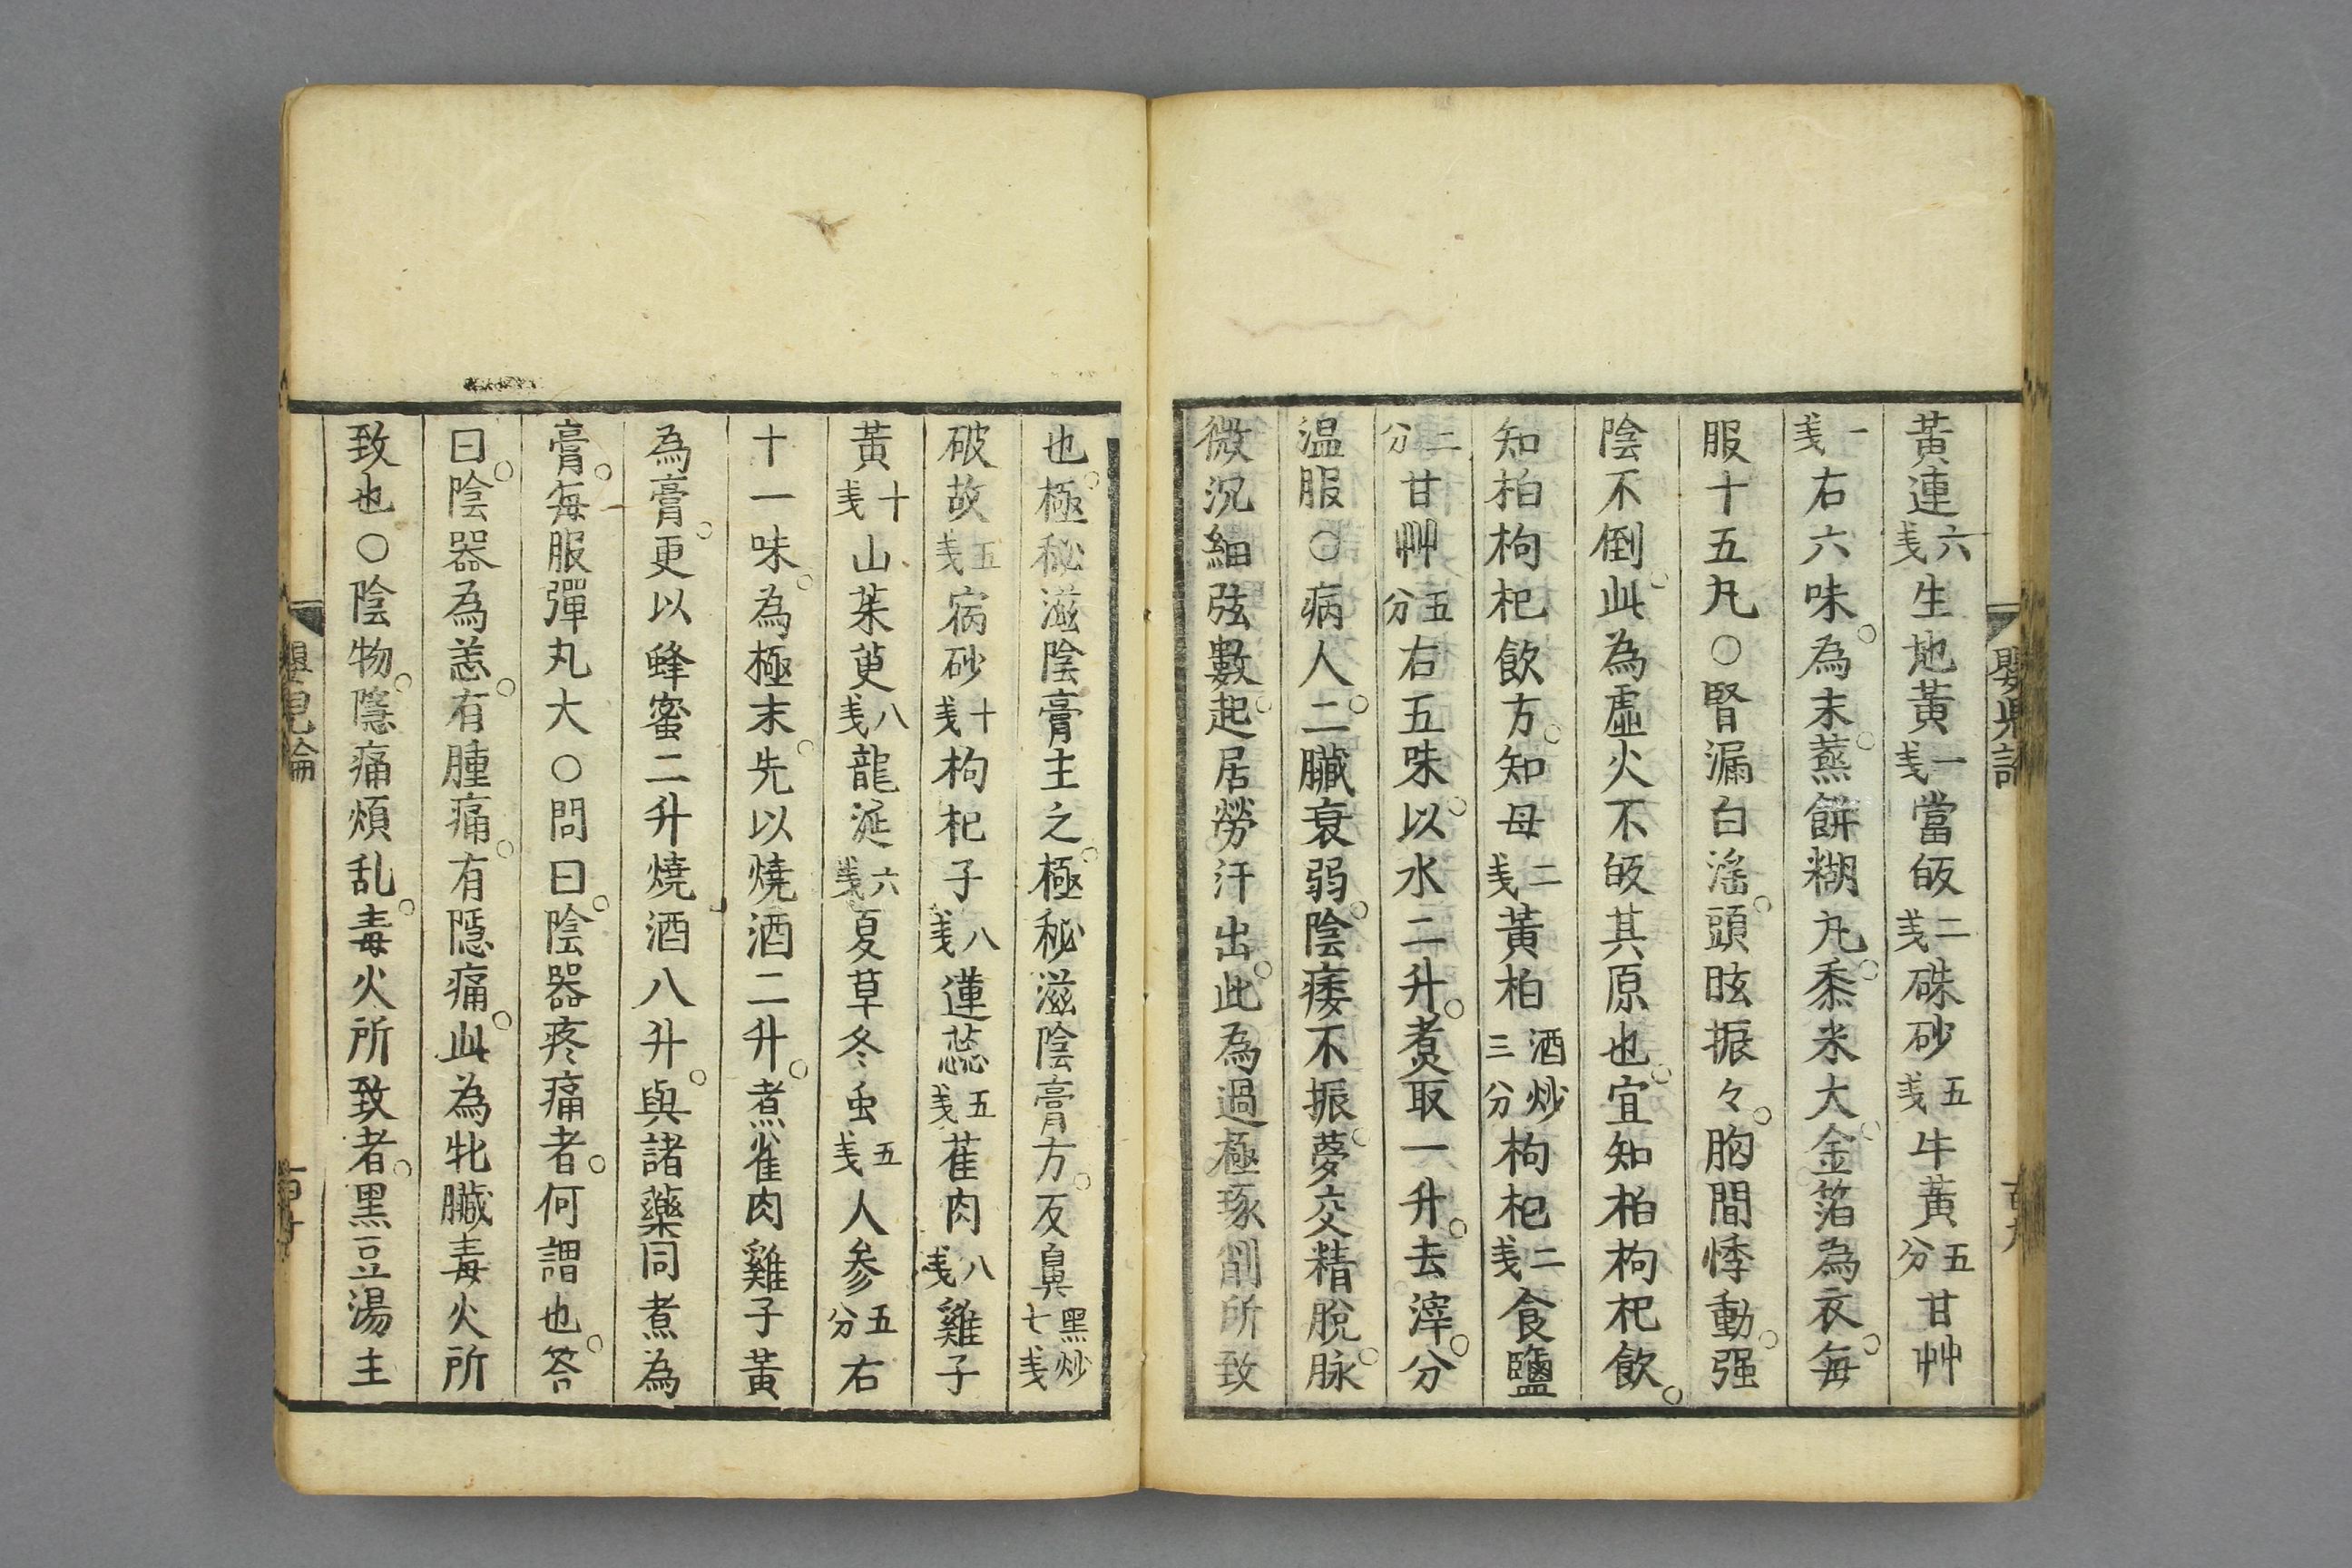 黃連六戔生地黃一戔當皈二戔硃砂五戔牛黃五分甘艸
一戔右六味為末。蒸餅糊丸。黍米大。金箔為衣。每
服十五丸○腎漏白滛。頭眩振々。胸間悸動。强
陰不倒。此為虛火不皈其原也。宜知柏枸杞飲。
知柏枸杞飲方。知母二戔黃柏酒炒三分枸杞二戔食鹽
二分甘艸五分右五味。以水二升。煑取一升。去滓。分
温服○病人。二臟衰弱。陰痿不振。夢交精脫。脉
微沉細弦數。起居勞汗出。此為過極琢削所致
也。極秘滋陰膏主之。極秘滋陰膏方。反鼻黑炒七戔
破故五戔宿砂十戔枸杞子八戔蓮蕊五戔萑肉八戔雞子
黃十戔山茱萸八戔龍涎六戔夏草冬虫五戔人参五分右
十一味。為極末。先以燒酒二升。煮雀肉雞子黃
為膏。更以蜂蜜二升燒酒八升。與諸藥同煮為
膏。每服彈丸大○問曰。陰器疼痛者。何謂也。答
曰。陰器為恙。有腫痛。有隱痛。此為牝臟毒火所
致也○陰物。隱痛煩乱。毒火所致者。黑豆湯主